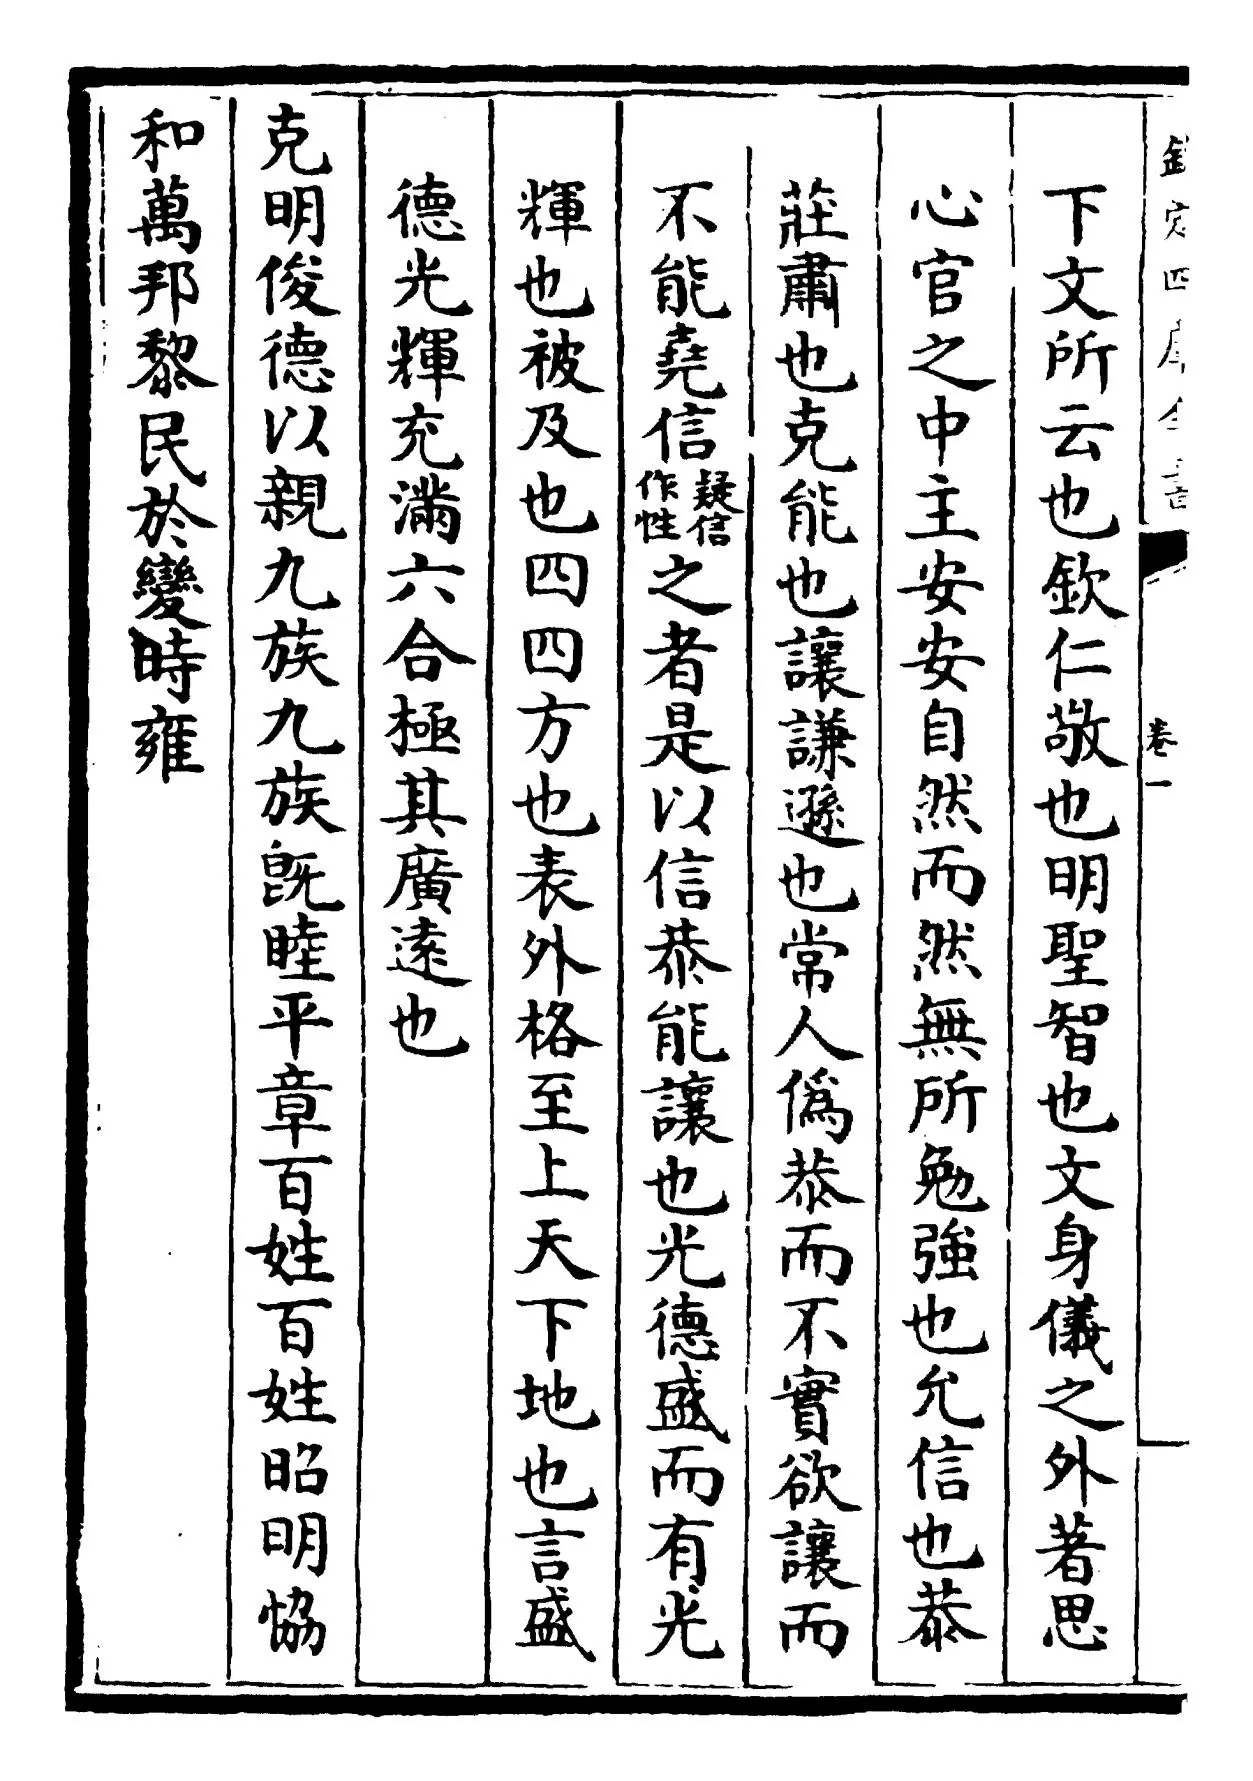 欽定四庫全書
卷一
下文所云也欽仁敬也明聖智也文身儀之外著思
心官之中主安安自然而然無所勉強也允信也恭
莊肅也克能也讓謙遜也常人偽恭而不實欲讓而
不能堯信疑信作性之者是以信恭能讓也光德盛而有光
輝也被及也四四方也表外格至上天下地也言盛
德光輝充滿六合極其廣遠也
克明俊德以親九族九族既睦平章百姓百姓昭明恊
和萬邦黎民於變時雍